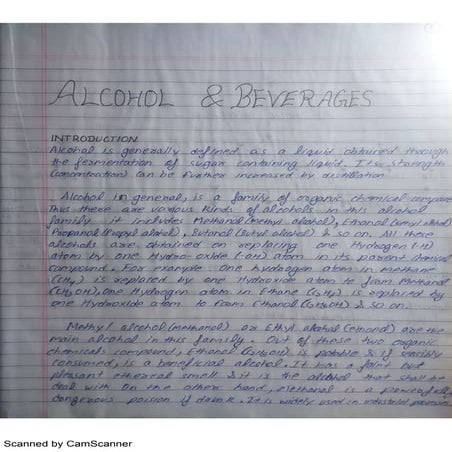 ALCOHOL & BEVERAGES
INTRODUCTION
Alcohol is generally defined as a liquid obtained through
the fermentation of sugar containing liquid. Its strength
(concentration) can be further increased by distillation.
Alcohol in general, is a family of organic chemical compound
Thus there are various kinds of alcohols in this alcohol
family. it includes Methanol (methyl alcohol), Ethanol (ethyl alcohol)
Propanol (Propyl alcohol), Butanol (Butyl alcohol) & so on. All these
alcohols are obtained on replacing one Hydrogen (-H)
atom by one Hydro-oxide (-OH) atom in its parent chemical
compound. For example one hydrogen atom in methane
(CH4) is replaced by one Hydroxide atom to form Methanol
(CH3OH), one Hydrogen atom in Ethane (C2H6) is replaced by
one Hydroxide atom to form Ethanol (C2H5OH) & so on.
Methyl alcohol (methanol) or Ethyl alcohol (ethanol) are the
main alcohol in this family. Out of these two organic
chemicals compound, Ethanol (C2H5OH) is potable & if sensibly
consumed, is a beneficial alcohol. It has a faint but
pleasant ethereal smell & it is the alcohol that shall be
deal with. On the other hand, methanol is a powerfully
dangerous poision if drank. It is widely used in industrial processes
Scanned by CamScanner